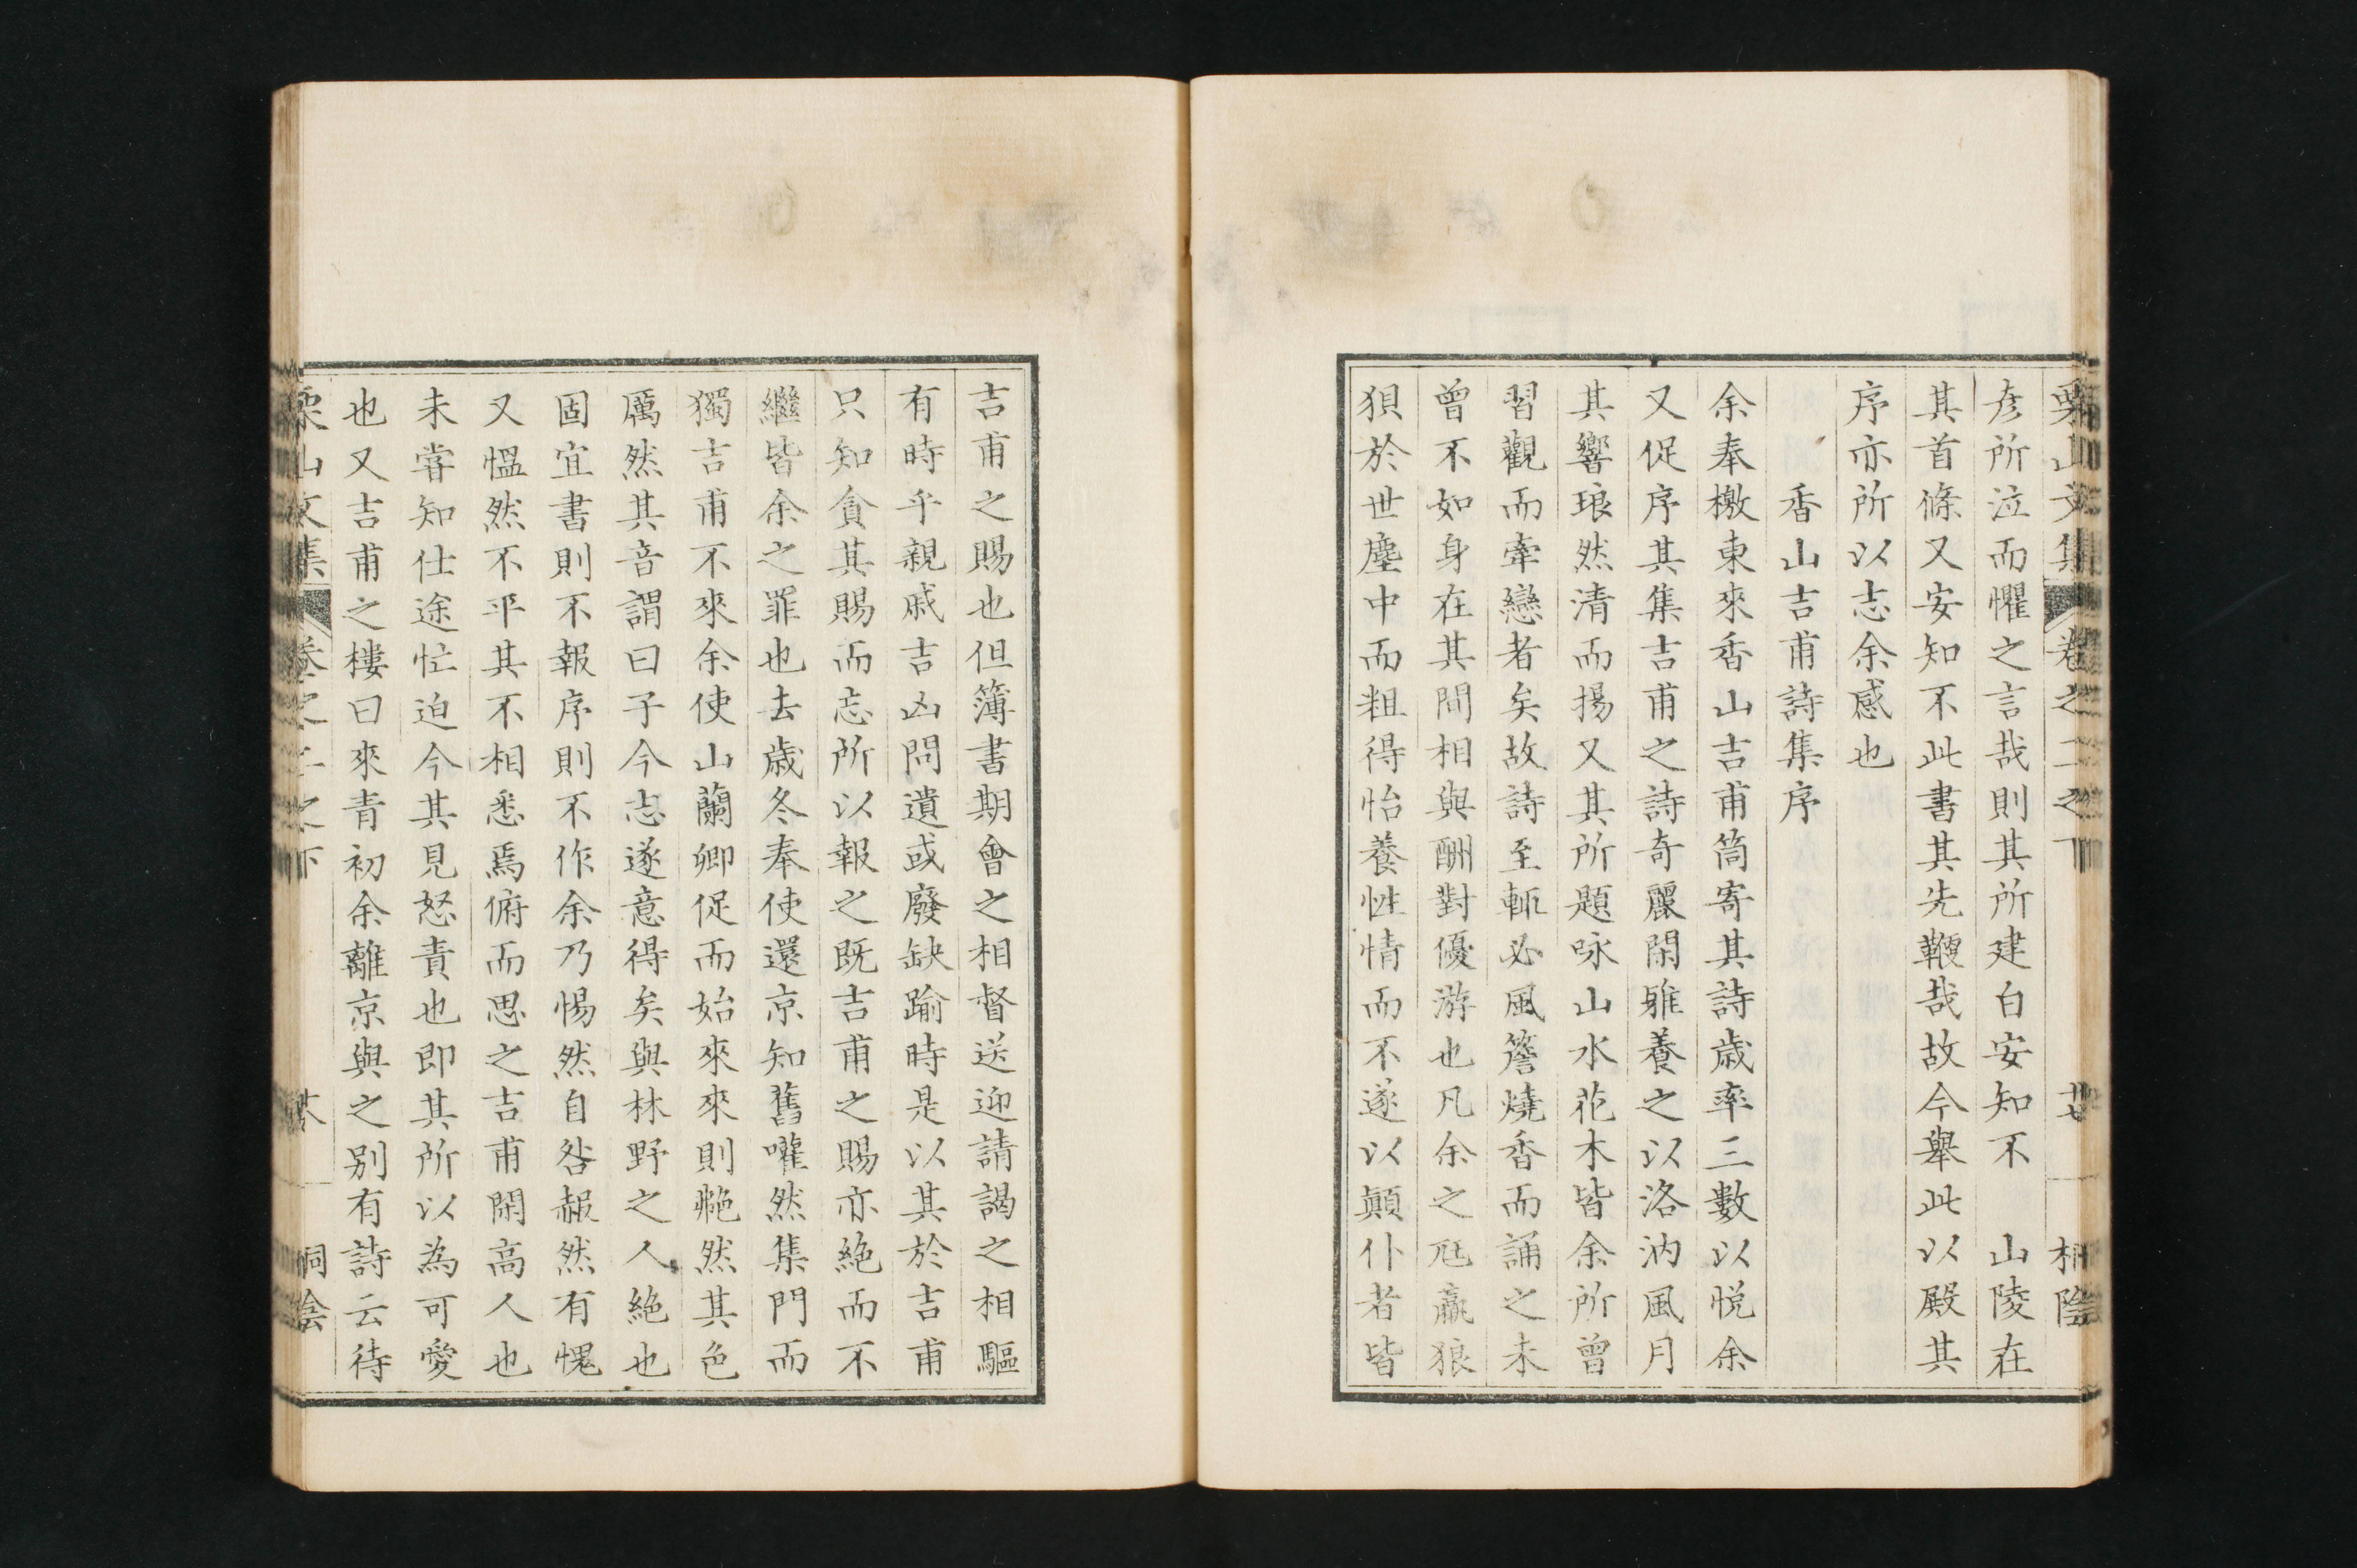 栗山文集 卷之二之下 廿七 桐陰
彦所泣而懼之言哉則其所建白安知不　山陵在
其首條又安知不此書其先鞭哉故今舉此以殿其
序亦所以志余感也
香山吉甫詩集序
余奉檄東來香山吉甫筒寄其詩歳率三數以悦余
又促序其集吉甫之詩奇麗閑雅養之以洛汭風月
其響琅然清而揚又其所題咏山水花木皆余所曾
習觀而牽戀者矣故詩至輒必風簷燒香而誦之未
曾不如身在其間相與酬對優游也凡余之尫羸狼
狽於世塵中而粗得怡養性情而不遂以顛仆者皆
吉甫之賜也但簿書期會之相督送迎請謁之相驅
有時乎親戚吉凶問遺或廢缺踰時是以其於吉甫
只知貪其賜而忘所以報之既吉甫之賜亦絶而不
繼皆余之罪也去歳冬奉使還京知舊嚾然集門而
獨吉甫不來余使山蘭卿促而始來來則艴然其色
厲然其音謂曰子今志遂意得矣與林野之人絶也
固宜書則不報序則不作余乃惕然自咎赧然有愧
又慍然不平其不相悉焉俯而思之吉甫閑高人也
未甞知仕途忙迫今其見怒責也即其所以為可愛
也又吉甫之樓曰來青初余離京與之別有詩云待
栗山文集 卷之二之下 桐陰